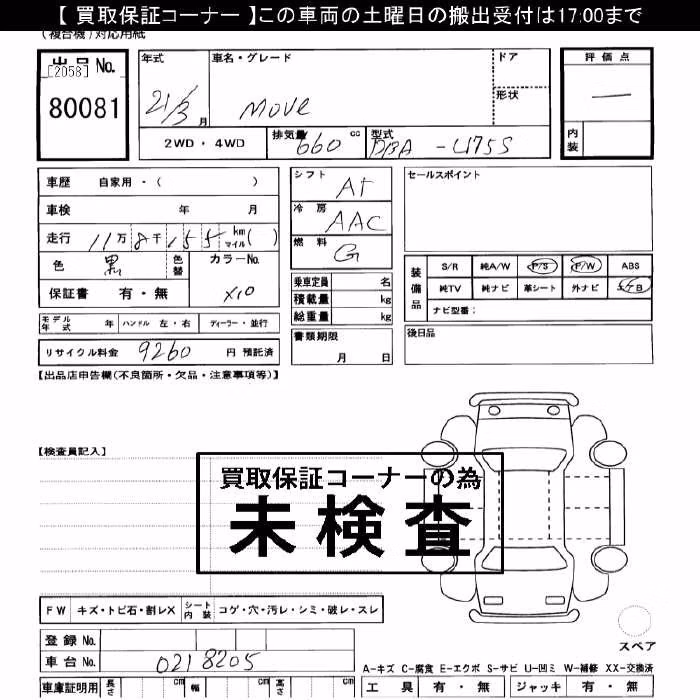 【 買取保証コーナー 】この車両の土曜日の搬出受付は17:00まで
(複合機)対応用紙
出品 No.
[2058]
80081
年式
21/3 月
車名・グレード
MOVE
ドア
形状
評価点
—
内装
2WD・4WD
排気量 660 cc
型式 DBA -L175S
車歴 自家用・( )
車検 年 月
走行 11万8千155 km マイル( )
色 黒 色替
カラーNo. X10
保証書 有・無
シフト AT
冷房 AAC
燃料 G
セールスポイント
乗車定員 名
積載量 kg
総重量 kg
装備品
S/R 純A/W P/S P/W ABS
純TV 純ナビ 革シート 外ナビ エアB
ナビ型番:
モデル年式 年 ハンドル 左・右 ディーラー・並行
リサイクル料金 9260 円 預託済
書類期限
月 日
後日品
【出品店申告欄(不良箇所・欠品・注意事項等)】
【検査員記入】
買取保証コーナーの為
未検査
FW キズ・トビ石・割レX シート内装 コゲ・穴・汚レ・シミ・破レ・スレ
スペア
登録 No.
車台 No. 0218205
A-キズ C-腐食 E-エクボ S-サビ U-凹ミ W-補修 XX-交換済
車庫証明用 長さ cm 幅 cm 高さ cm
工具 有・無 ジャッキ 有・無